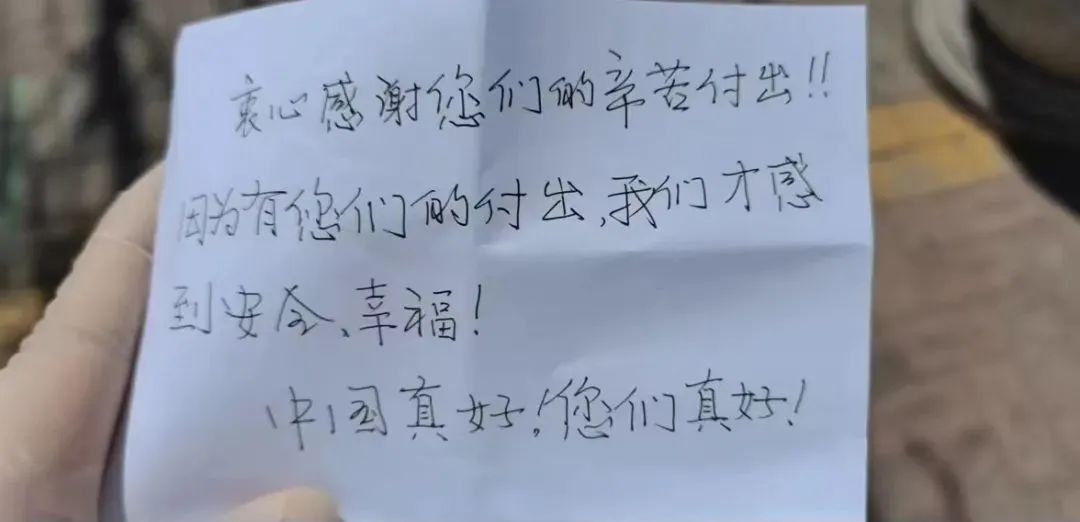 衷心感谢您们的辛苦付出!!
因为有您们的付出,我们才感
到安全、幸福!
中国真好!您们真好!